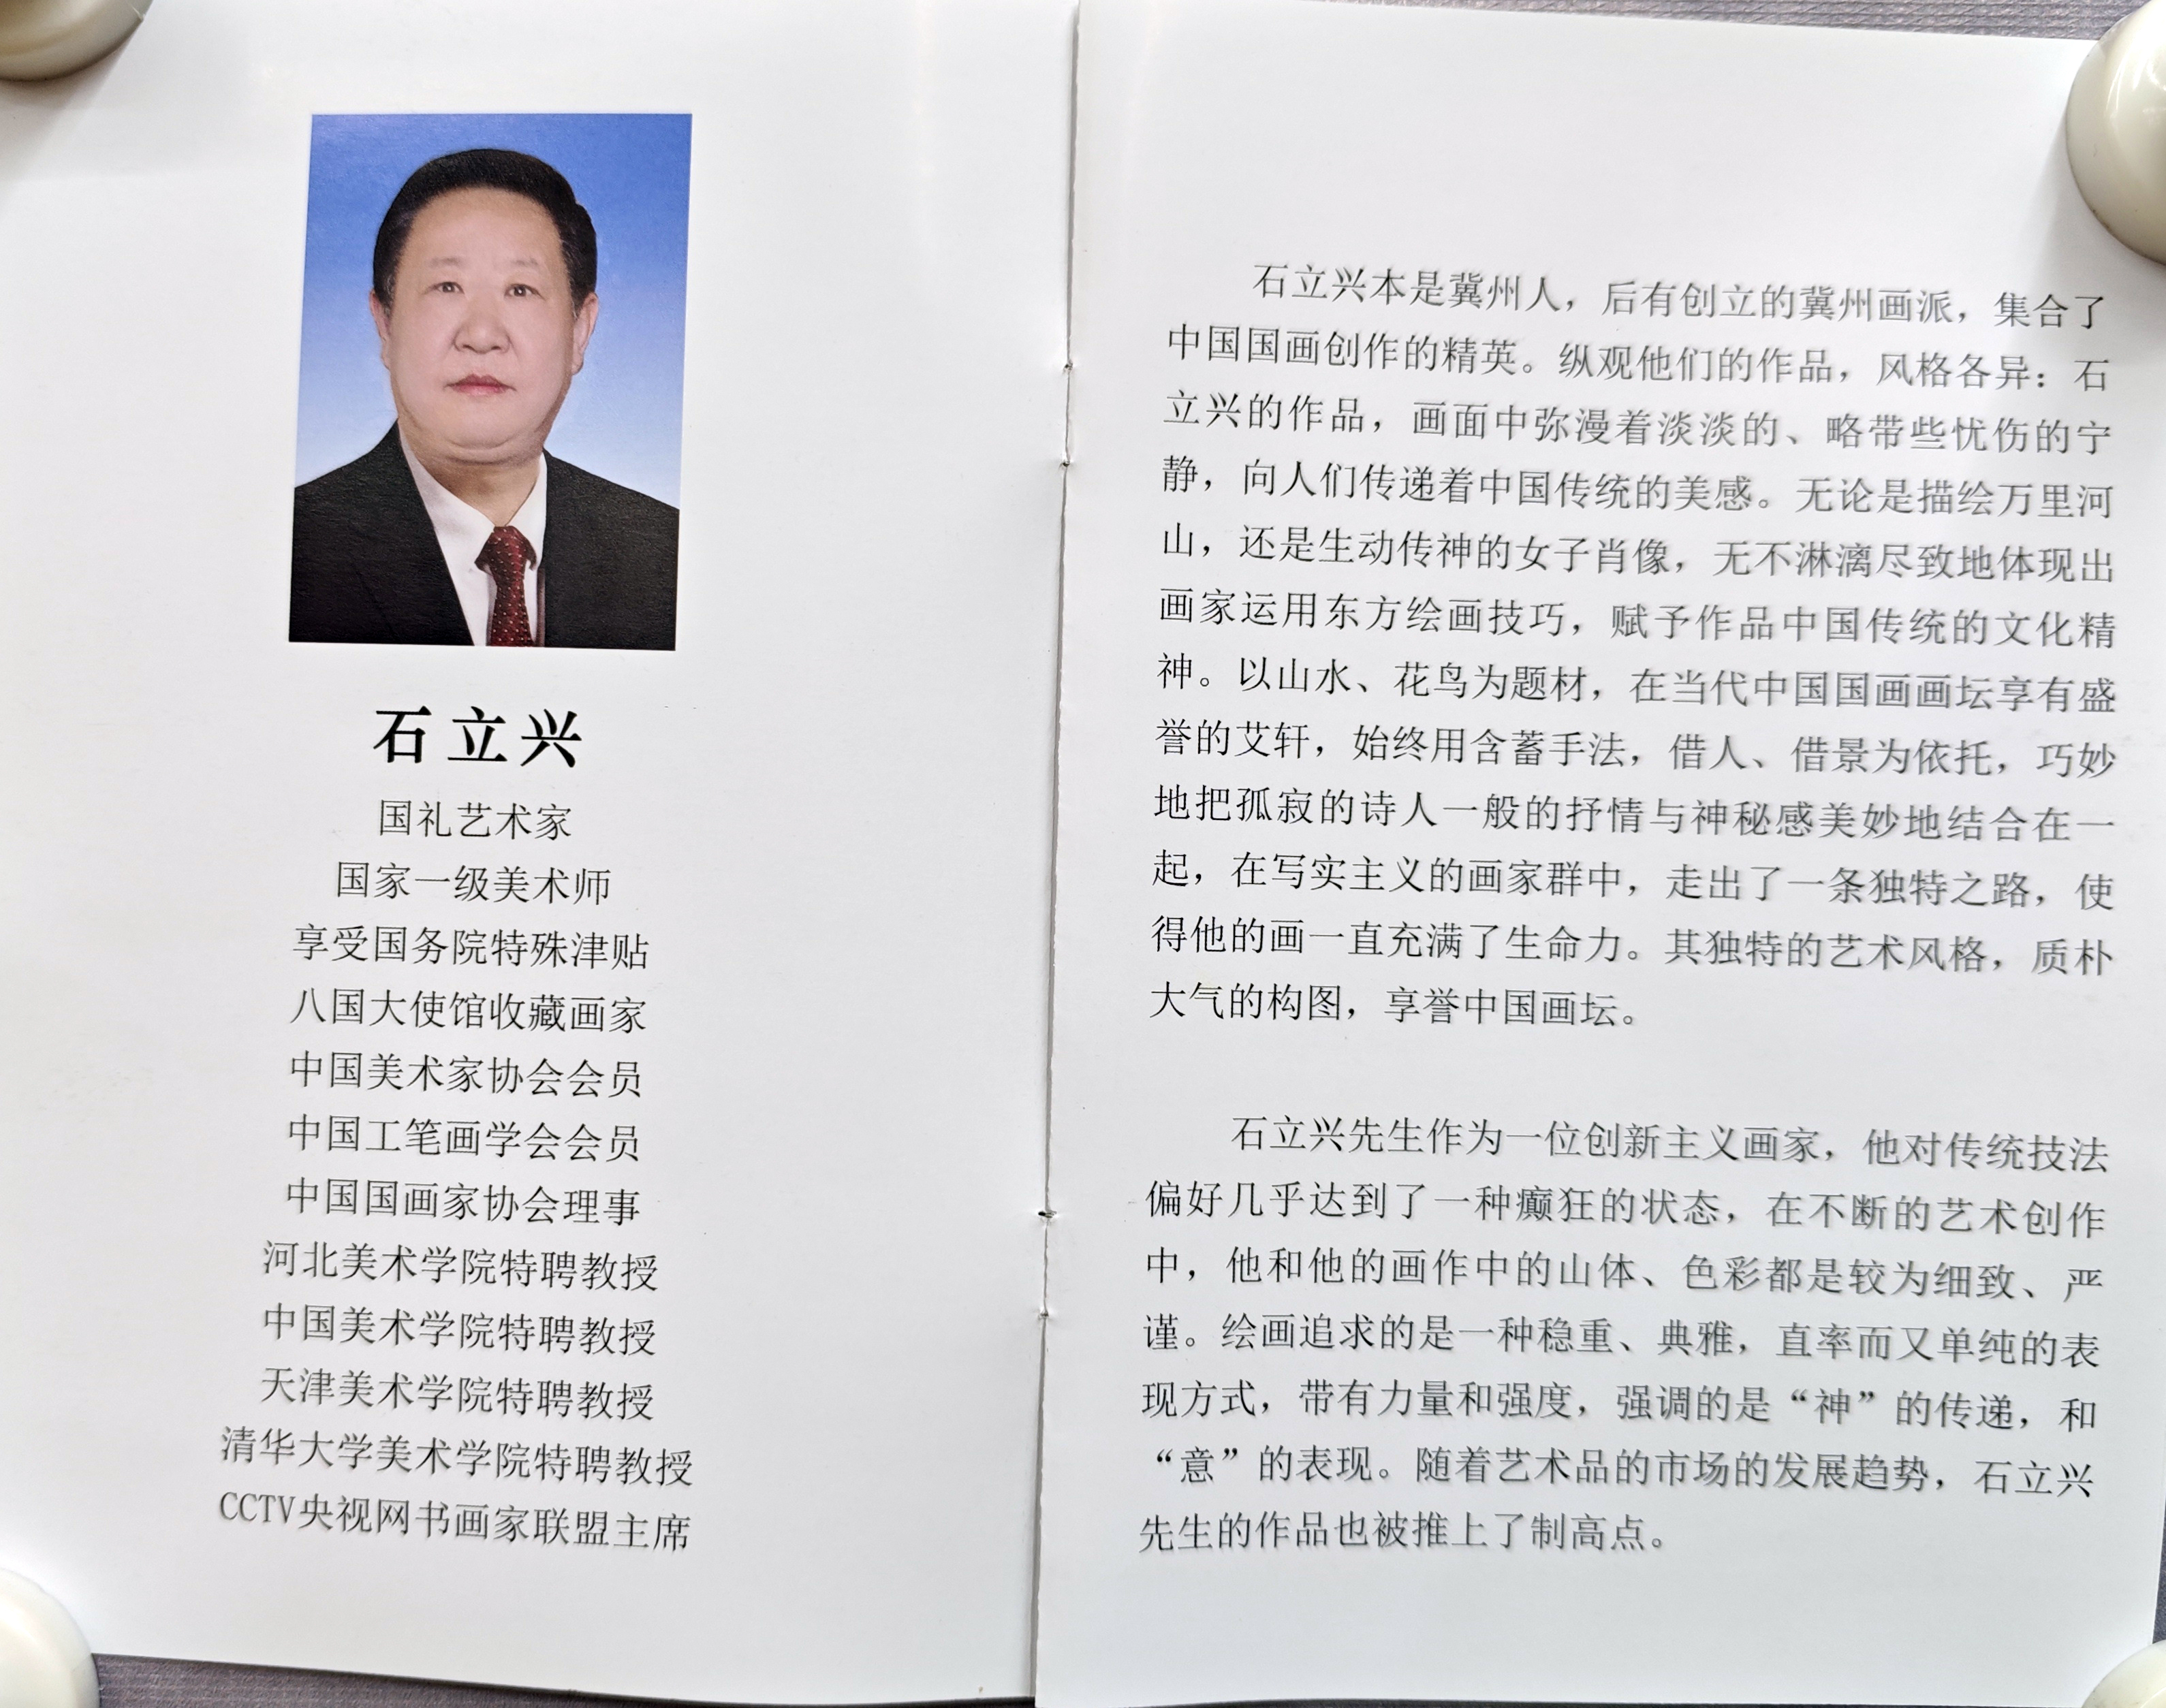 石立兴
国礼艺术家
国家一级美术师
享受国务院特殊津贴
八国大使馆收藏画家
中国美术家协会会员
中国工笔画学会会员
中国国画家协会理事
河北美术学院特聘教授
中国美术学院特聘教授
天津美术学院特聘教授
清华大学美术学院特聘教授
CCTV央视网书画家联盟主席
石立兴本是冀州人，后有创立的冀州画派，集合了
中国国画创作的精英。纵观他们的作品，风格各异：石
立兴的作品，画面中弥漫着淡淡的、略带些忧伤的宁
静，向人们传递着中国传统的美感。无论是描绘万里河
山，还是生动传神的女子肖像，无不淋漓尽致地体现出
画家运用东方绘画技巧，赋予作品中国传统的文化精
神。以山水、花鸟为题材，在当代中国国画画坛享有盛
誉的艾轩，始终用含蓄手法，借人、借景为依托，巧妙
地把孤寂的诗人一般的抒情与神秘感美妙地结合在一
起，在写实主义的画家群中，走出了一条独特之路，使
得他的画一直充满了生命力。其独特的艺术风格，质朴
大气的构图，享誉中国画坛。
石立兴先生作为一位创新主义画家，他对传统技法
偏好几乎达到了一种癫狂的状态，在不断的艺术创作
中，他和他的画作中的山体、色彩都是较为细致、严
谨。绘画追求的是一种稳重、典雅，直率而又单纯的表
现方式，带有力量和强度，强调的是“神”的传递，和
“意”的表现。随着艺术品的市场的发展趋势，石立兴
先生的作品也被推上了制高点。